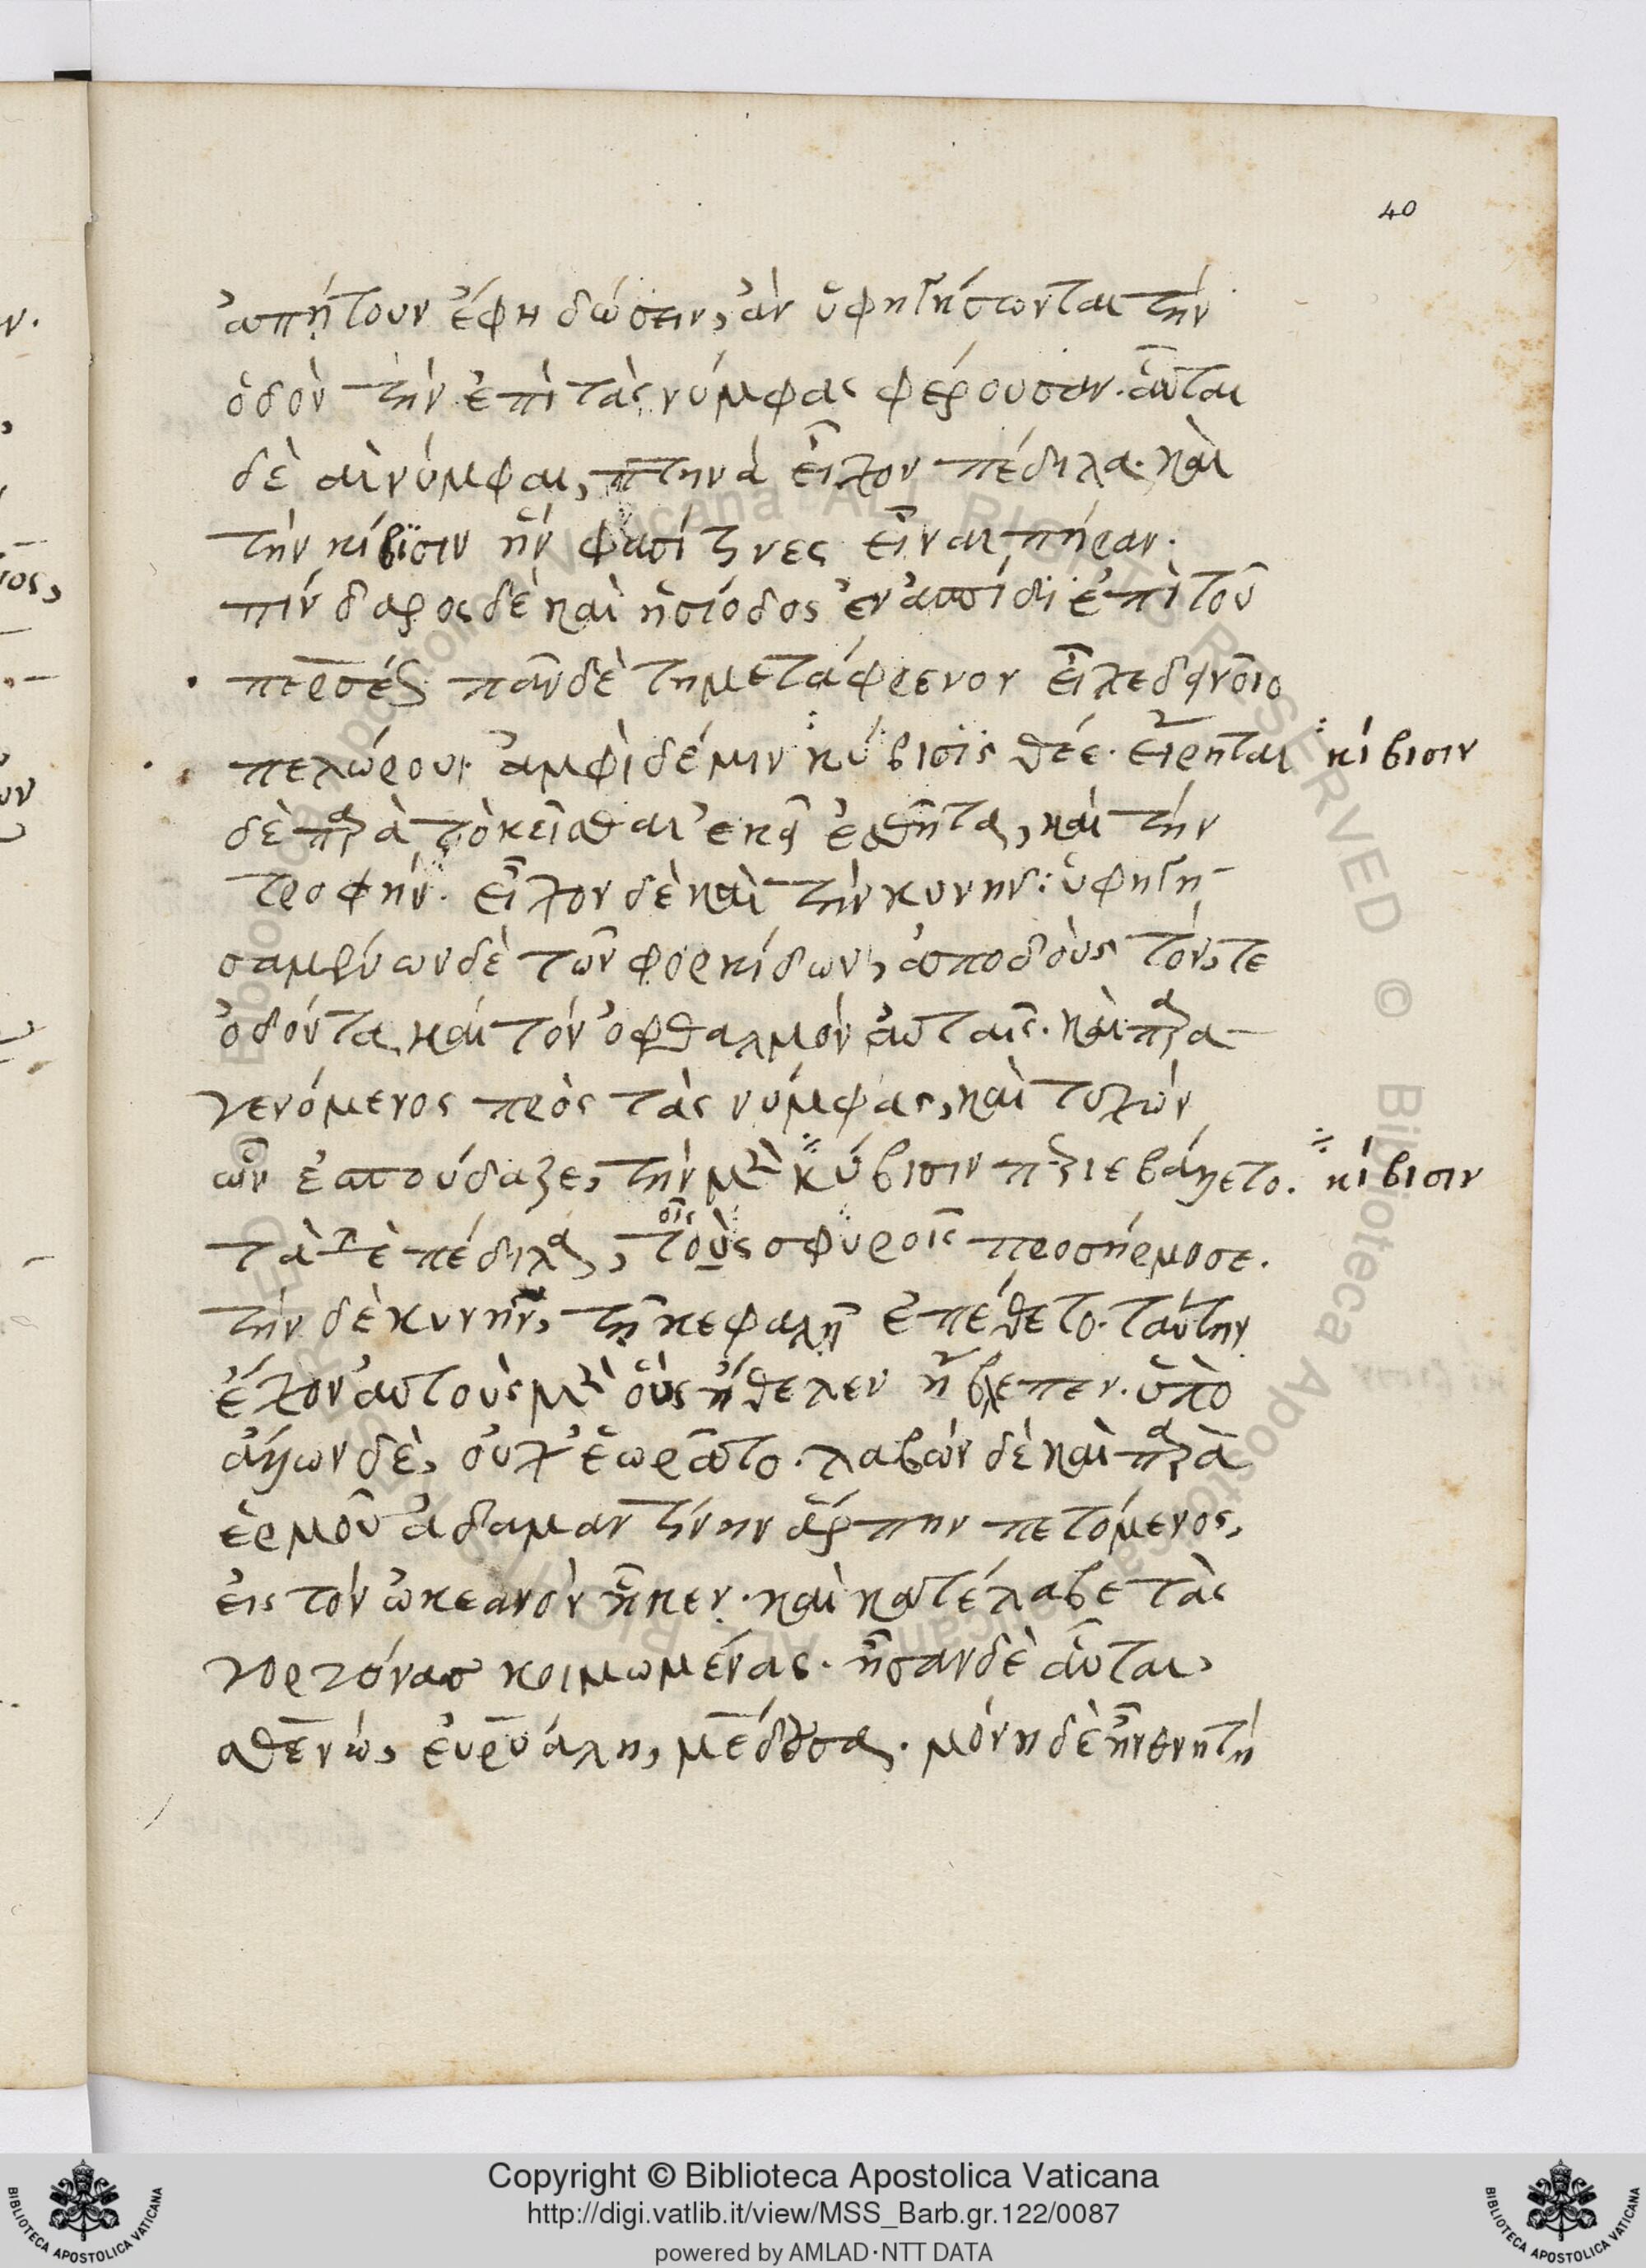 40
ἀπῄτουν ἔφη δώσειν, ἂν ὑφηγήσωνται τὴν
ὁδὸν τὴν ἐπὶ τὰς νύμφας φέρουσαν. αὗται
δὲ αἱ νύμφαι, πτηνὰ εἶχον πέδιλα. καὶ
τὴν κίβισιν ἥν φασί τινες εἶναι πήραν.
πίνδαρος δὲ καὶ ἡσίοδος ἐν ἀσπίδι ἐπὶ τοῦ
περσέως πᾶν δὲ τημετάφρενον εἶχε
πελώρου. ἀμφὶ δέ μιν κύβισις θέε. εἴρηται κίβισιν
δὲ παρὰ τὸ κεῖσθαι ἐκεῖ ἐσθῆτα, καὶ τὴν
τροφήν. εἶχον δὲ καὶ τὴν κυνῆν: ὑφηγη-
σαμένων δὲ τῶν φορκίδων, ἀποδοὺς τόν, τε
ὀδόντα, καὶ τὸν ὀφθαλμὸν αὐταῖς. καὶ παρα-
γενόμενος πρὸς τὰς νύμφας, καὶ τυχὼν
ὧν ἐσπούδαζε, τὴν μὲν κύβισιν περιεβάλλετο. κίβισιν
τὰ δὲ πέδιλα, τοὺς οῖς σφυροῖς προσήρμοσε.
τὴν δὲ κυνῆν, τῇ κεφαλῇ ἐπέθετο. ταύτην
ἔχον αὐτοὺς μὲν οὓς ἤθελεν ἤβλεπεν. ὑπὸ
ἄλλων δὲ, οὐχ' ἑωρᾶτο. λαβὼν δὲ καὶ παρὰ
ἑρμοῦ ἀδαμαντίνην ἅρπην πετόμενος,
εἰς τὸν ὠκεανὸν ἧκεν. καὶ κατέλαβε τὰς
γοργόνας κοιμωμένας. ἦσαν δὲ αὗται,
σθενὼ, εὐρυάλη, μέδουσα. μόνη δὲ ἦν θνητὴ
Copyright © Biblioteca Apostolica Vaticana
http://digi.vatlib.it/view/MSS_Barb.gr.122/0087
powered by AMLAD·NTT DATA
BIBLIOTECA APOSTOLICA VATICANA
BIBLIOTECA APOSTOLICA VATICANA